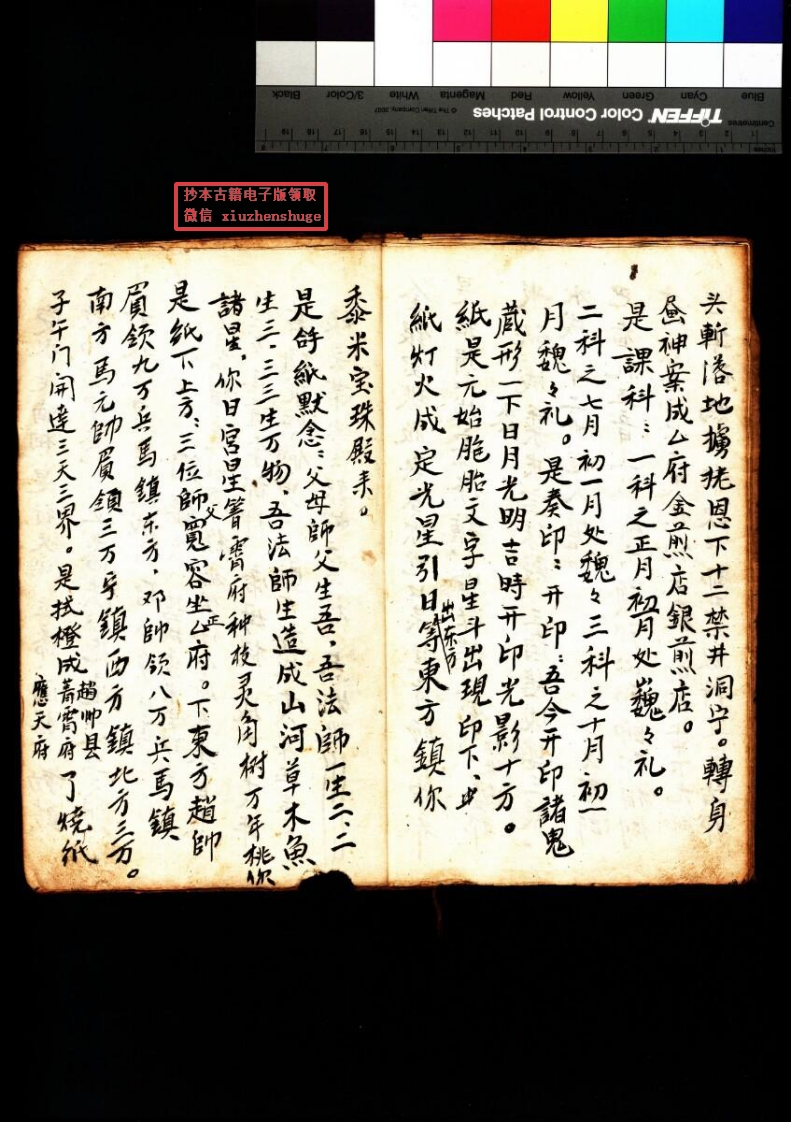 Blue
Cyan
Green
Yellow
Red
Magenta
White
3/Color
Black
Centimetres
TIFFEN Color Control Patches
© The Tiffen Company, 2007
Inches
抄本古籍电子版领取
微信 xiuzhenshuge
头斬落地擄捞恩下十二禁井洞宁。轉身
神案成厶府金煎店銀煎店。
是課科：一科之正月初一月处巍々礼。
二科之七月初一月处魏々三科之十月初一
月魏々礼。是奏印：开印：吾今开印諸鬼
蔵形一下日月光明吉時开印光影十方。
紙是元始胞胎文字星斗出現印下、
紙灯火成定光星引日等東方鎮你
出东方
黍米宝珠殿来。
是紙默念：父母師父生吾、吾法師一生二、二
生三、三生万物、吾法師生造成山河草木魚
諸星。你日宮星箐霄府种枝灵角樹万年桃你
是紙下上方：三位師父寬容坐正厶府。下東方趙帥
眉领九万兵馬鎮东方，邓帥领八万兵馬鎮
南方馬元帥眉領三万兵鎮西方鎮北方三万。
子午门开達三天三界。是拭橙成菁霄府了燒紙
趙帅县
應天府